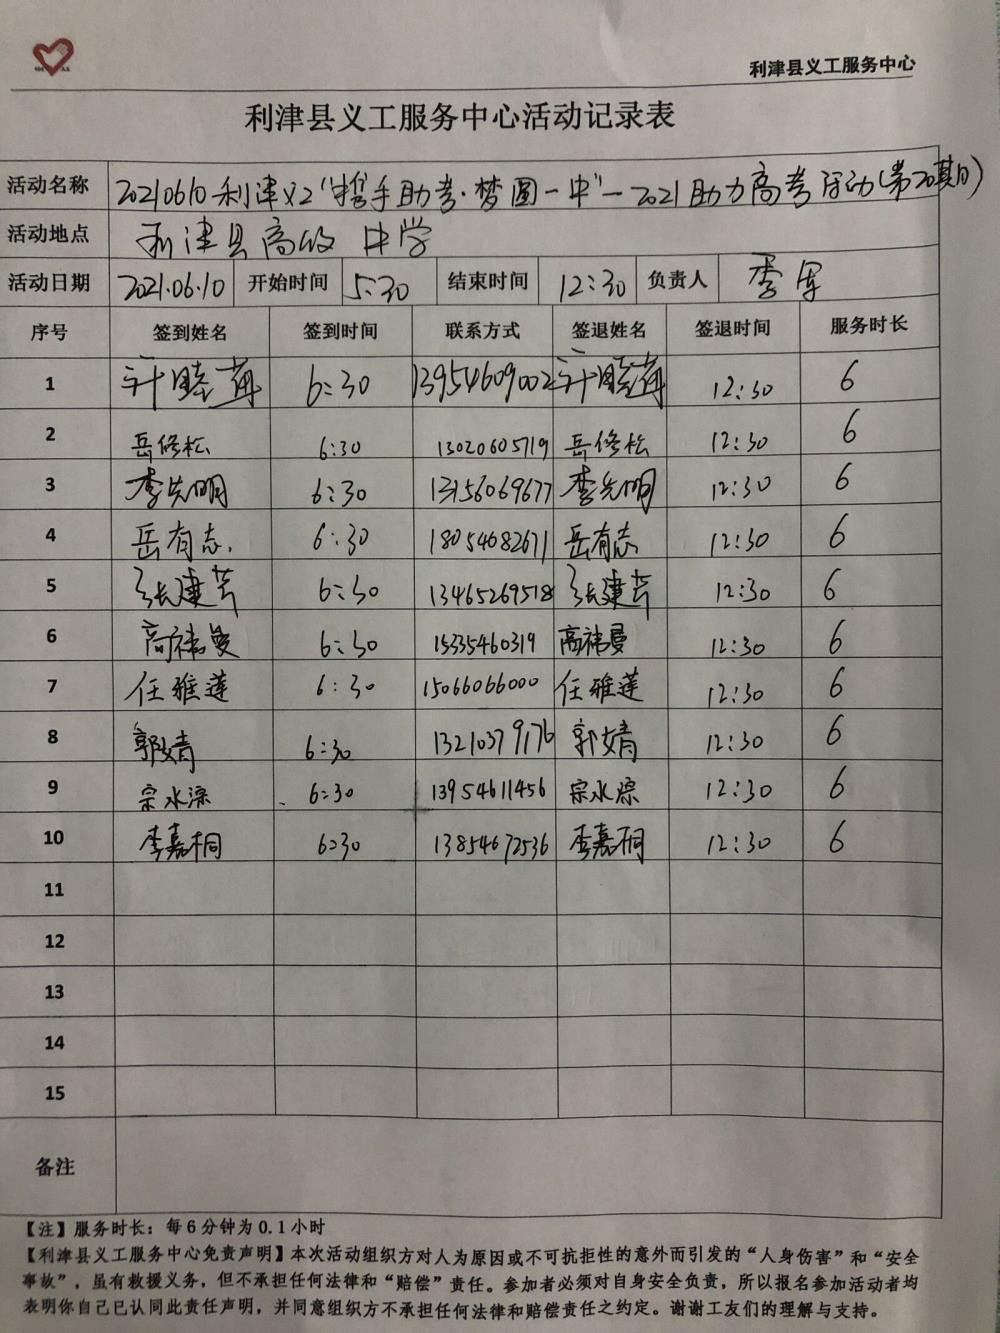 利津县义工服务中心
利津县义工服务中心活动记录表
活动名称 20210610利津义工"携手助考·梦圆一中"一2021助力高考活动(第20期10)
活动地点 利津县高级中学
活动日期 2021.06.10 开始时间 5:30 结束时间 12:30 负责人 李军
序号 签到姓名 签到时间 联系方式 签退姓名 签退时间 服务时长
1 6:30 13954609002 12:30 6
2 岳修松 6:30 13020605719 岳修松 12:30 6
3 李先明 6:30 13156069677 李先明 12:30 6
4 岳有志 6:30 18054682671 岳有志 12:30 6
5 张建芳 6:30 13465269518 张建芳 12:30 6
6 高祎曼 6:30 15335460319 高祎曼 12:30 6
7 任雅莲 6:30 15066066000 任雅莲 12:30 6
8 郭文青 6:30 13210379176 郭文青 12:30 6
9 宗水淙 6:30 13954611456 宗水淙 12:30 6
10 李嘉桐 6:30 13854672536 李嘉桐 12:30 6
11
12
13
14
15
备注
【注】服务时长：每6分钟为0.1小时
【利津县义工服务中心免责声明】本次活动组织方对人为原因或不可抗拒性的意外而引发的“人身伤害”和“安全
事故”，虽有救援义务，但不承担任何法律和“赔偿”责任。参加者必须对自身安全负责，所以报名参加活动者均
表明你自己已认同此责任声明，并同意组织方不承担任何法律和赔偿责任之约定。谢谢工友们的理解与支持。